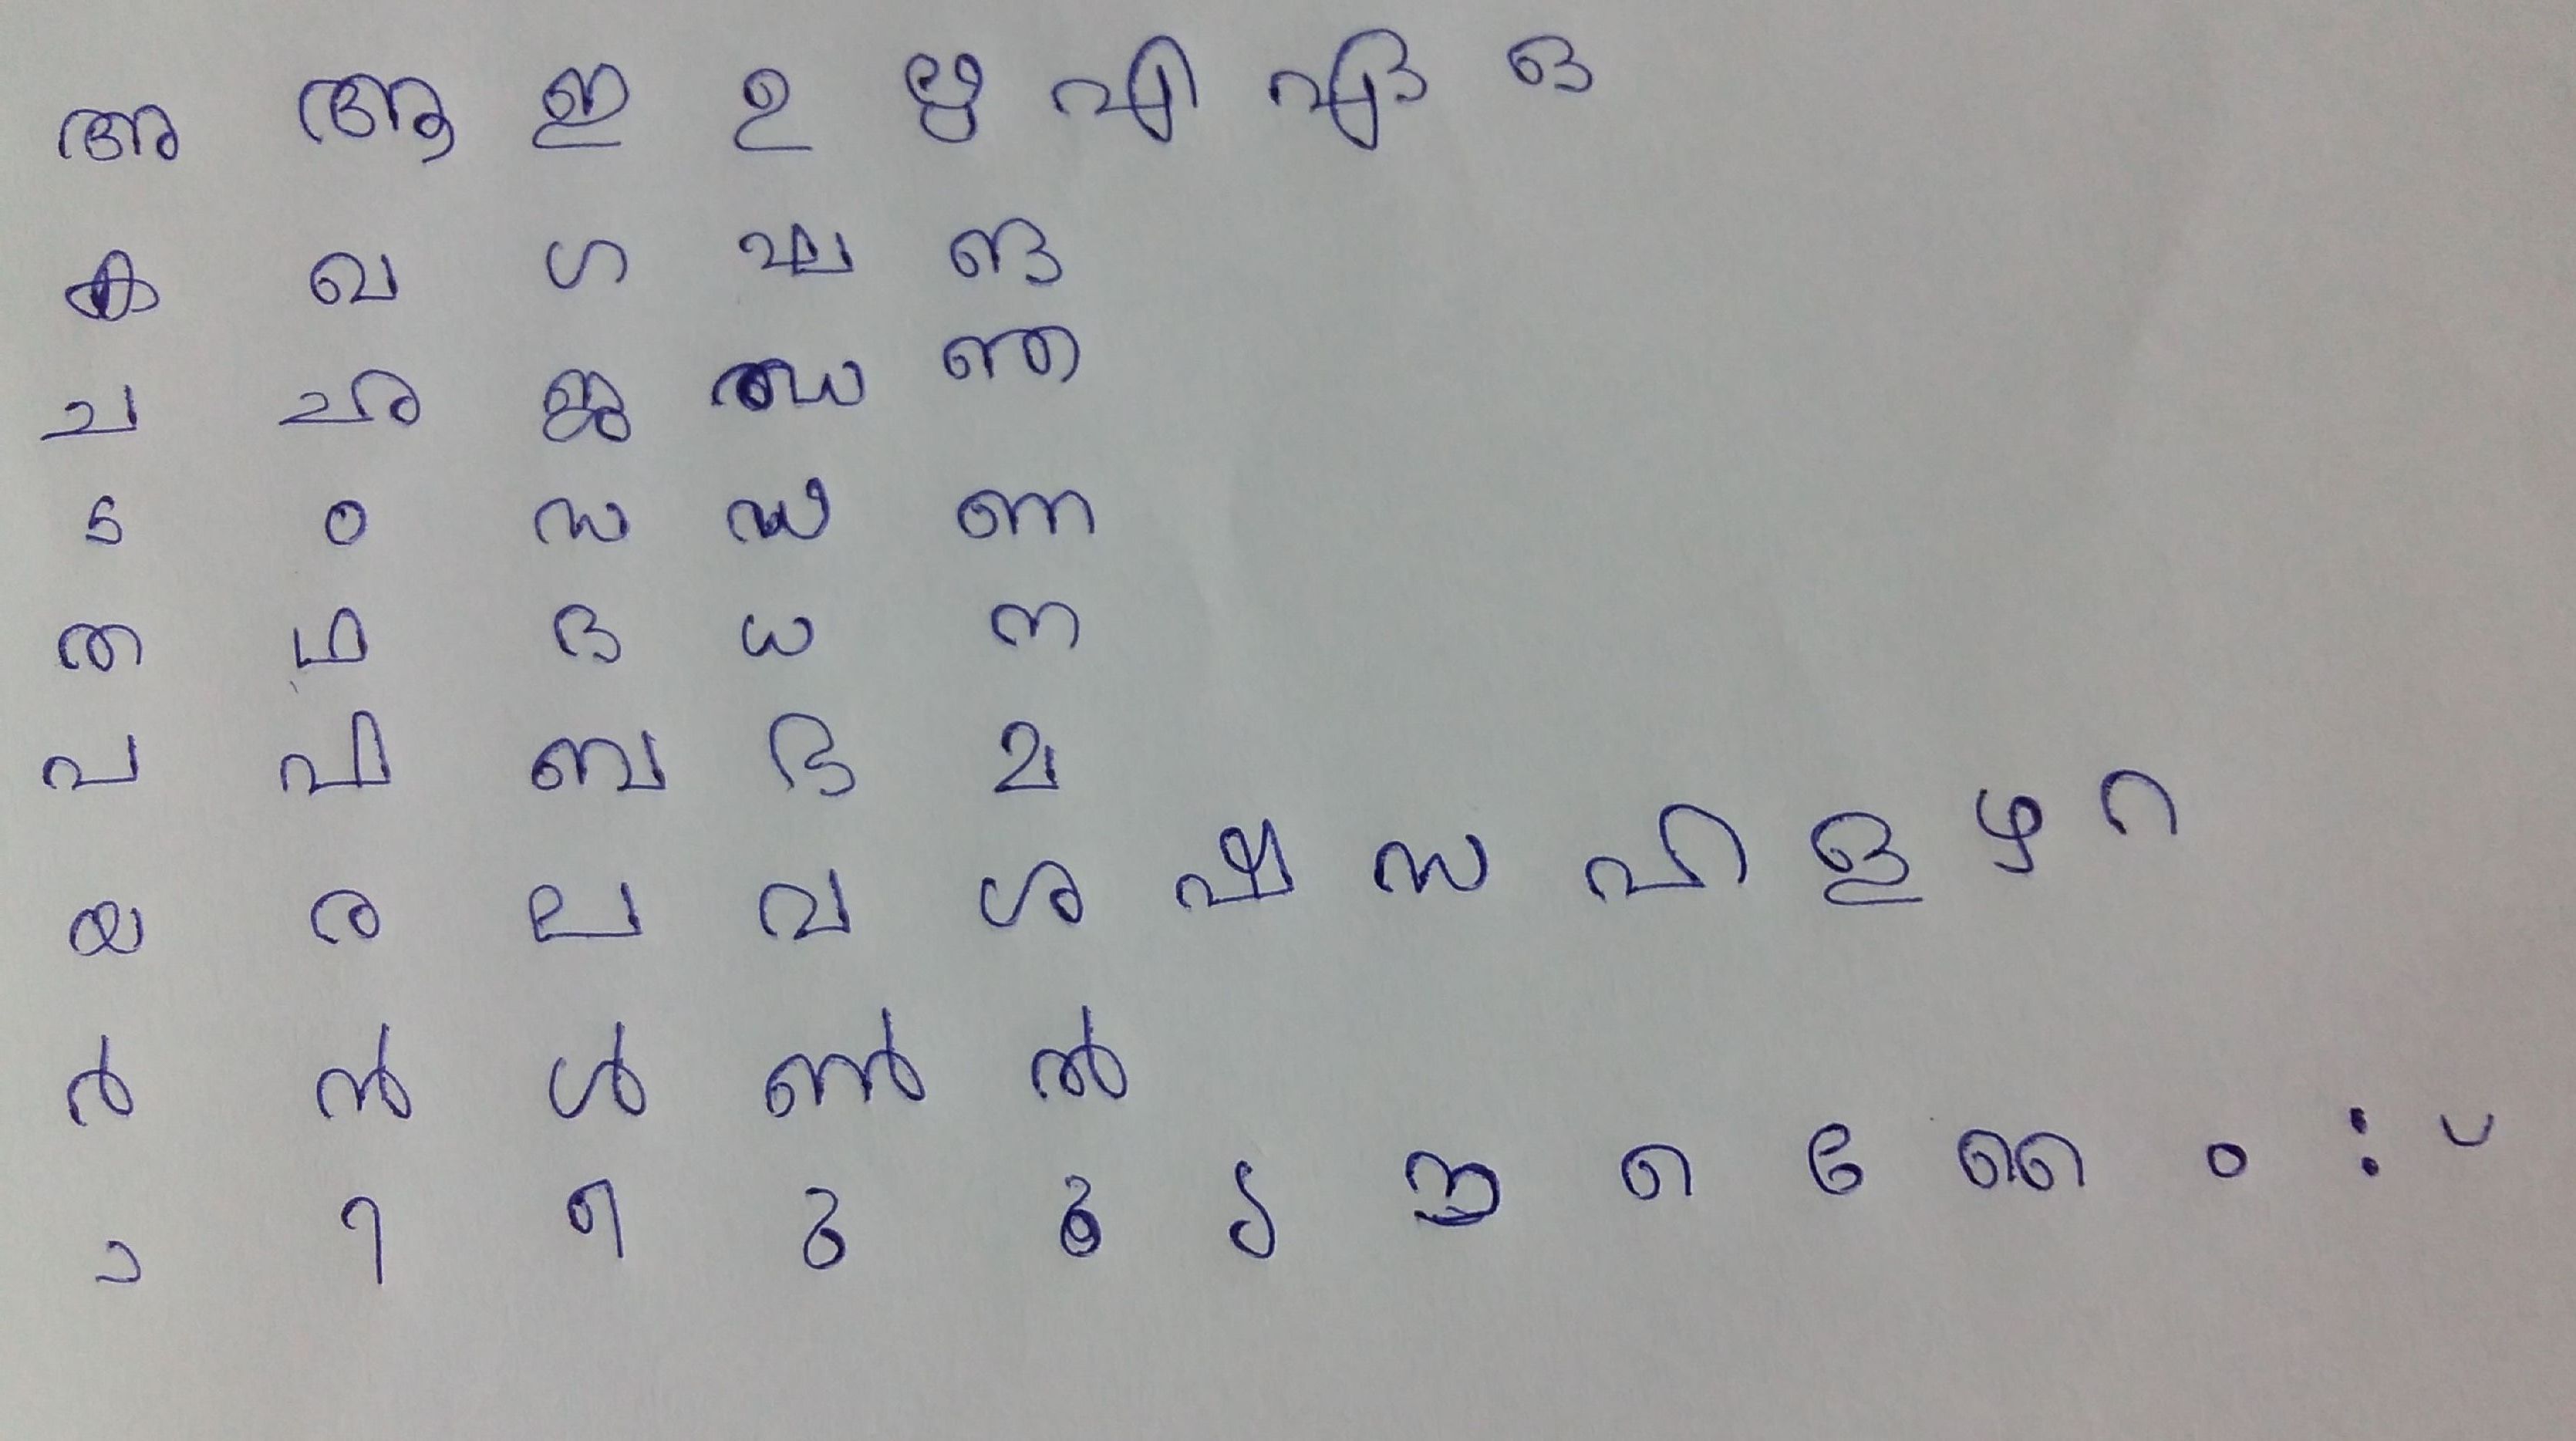 അ ആ ഇ ഉ ഋ എ ഏ ഒ
ക ഖ ഗ ഘ ങ
ച ഛ ജ ഝ ഞ
ട ഠ ഡ ഢ ണ
ത ഥ ദ ധ ന
പ ഫ ബ ഭ മ
യ ര ല വ ശ ഷ സ ഹ ള ഴ റ
ർ ൻ ൾ ൺ ൽ
ാ ി ീ ു ൂ ൃ െ േ ൈ ം ഃ ്